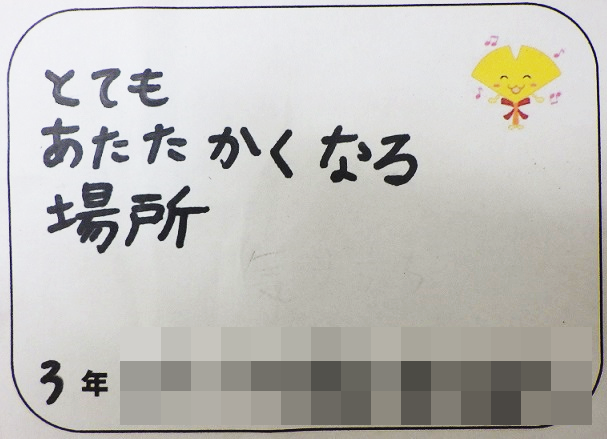 とても
あたたかくなる
場所
3年